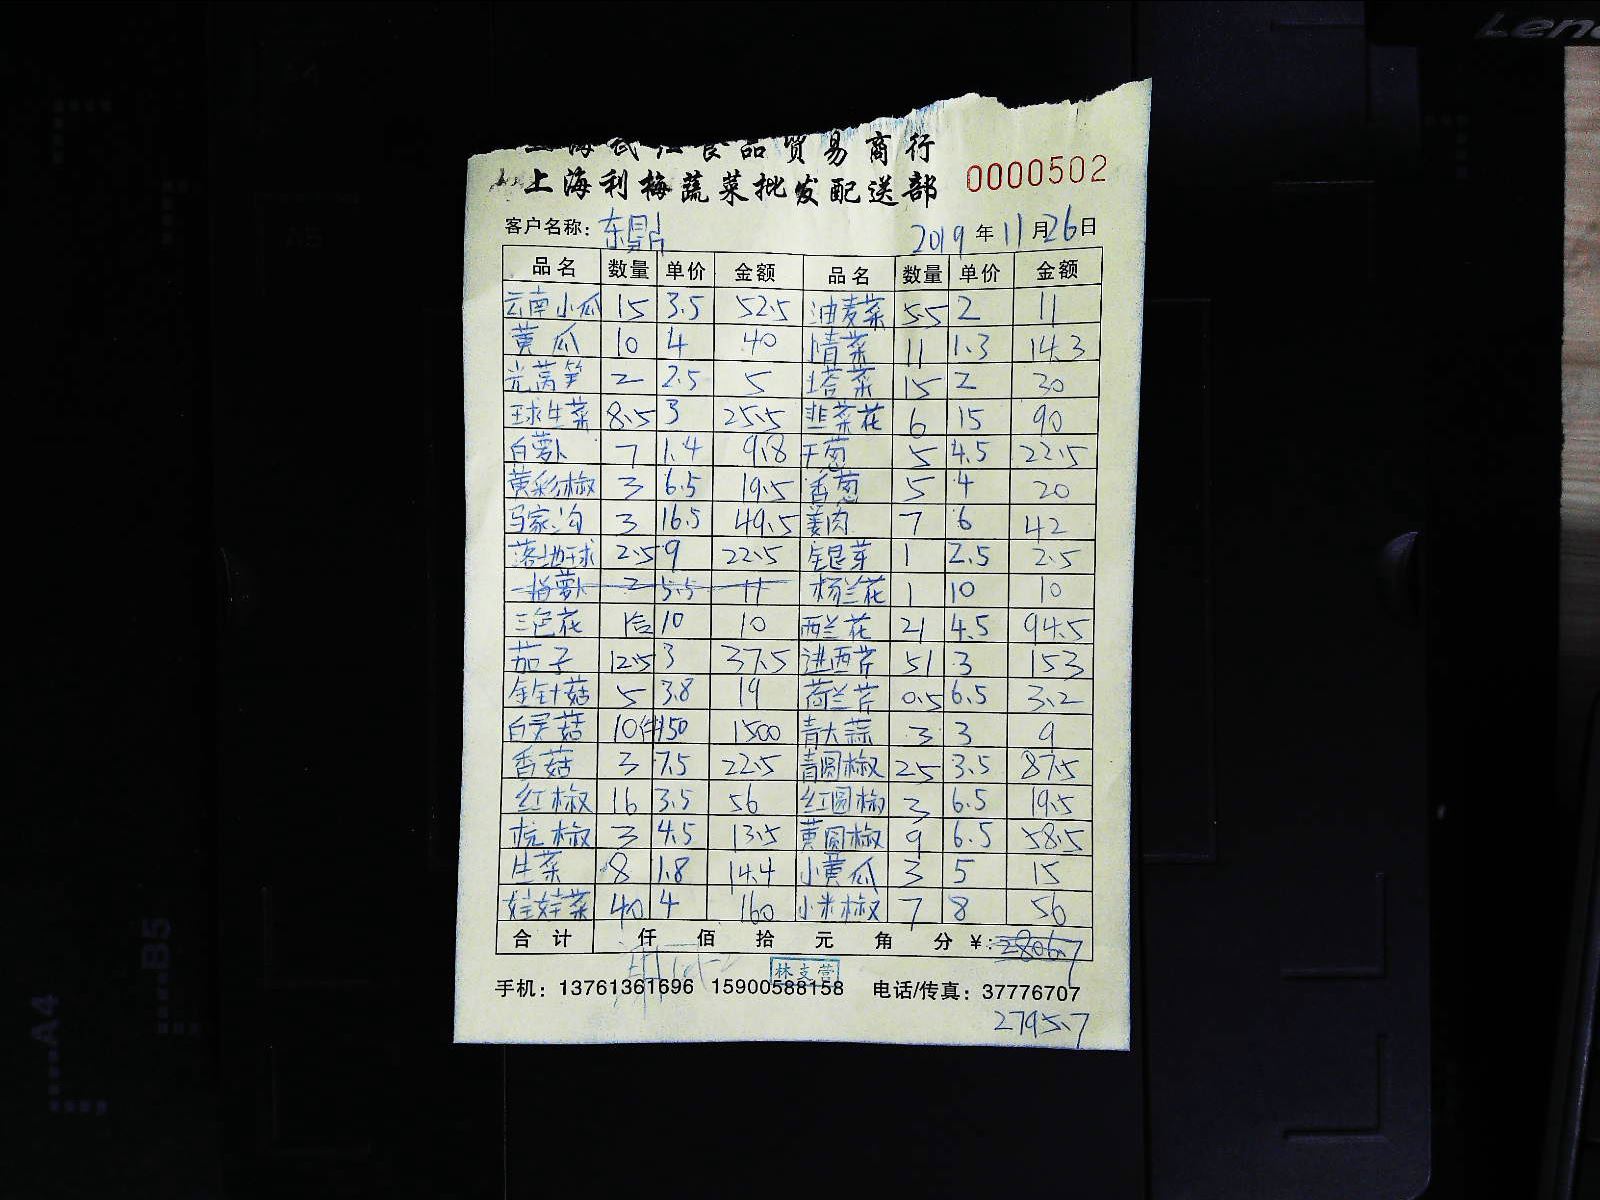 食品贸易商行
上海利梅蔬菜批发配送部 0000502
客户名称：东鼎 2019年11月26日
品名 数量 单价 金额 品名 数量 单价 金额
云南小瓜 15 3.5 52.5 油麦菜 5.5 2 11
黄瓜 10 4 40 清菜 11 1.3 14.3
光莴笋 2 2.5 5 塔菜 15 2 30
球生菜 8.5 3 25.5 韭菜花 6 15 90
白萝卜 7 1.4 9.8 干葱 5 4.5 22.5
黄彩椒 3 6.5 19.5 香葱 5 4 20
马家沟 3 16.5 49.5 姜肉 7 6 42
落地球 2.5 9 22.5 银芽 1 2.5 2.5
萝卜 2 5.5 11 杨兰花 1 10 10
三色花 1合 10 10 西兰花 21 4.5 94.5
茄子 12.5 3 37.5 进西芹 51 3 153
金针菇 5 3.8 19 荷兰芹 0.5 6.5 3.2
白灵菇 10件 150 1500 青大蒜 3 3 9
香菇 3 7.5 22.5 青圆椒 25 3.5 87.5
红椒 16 3.5 56 红圆椒 3 6.5 19.5
杭椒 3 4.5 13.5 黄圆椒 9 6.5 58.5
生菜 8 1.8 14.4 小黄瓜 3 5 15
娃娃菜 40 4 160 小米椒 7 8 56
合计 仟 佰 拾 元 角 分 ¥：2806.7
林支营
手机：13761361696 15900588158 电话/传真：37776707
2795.7